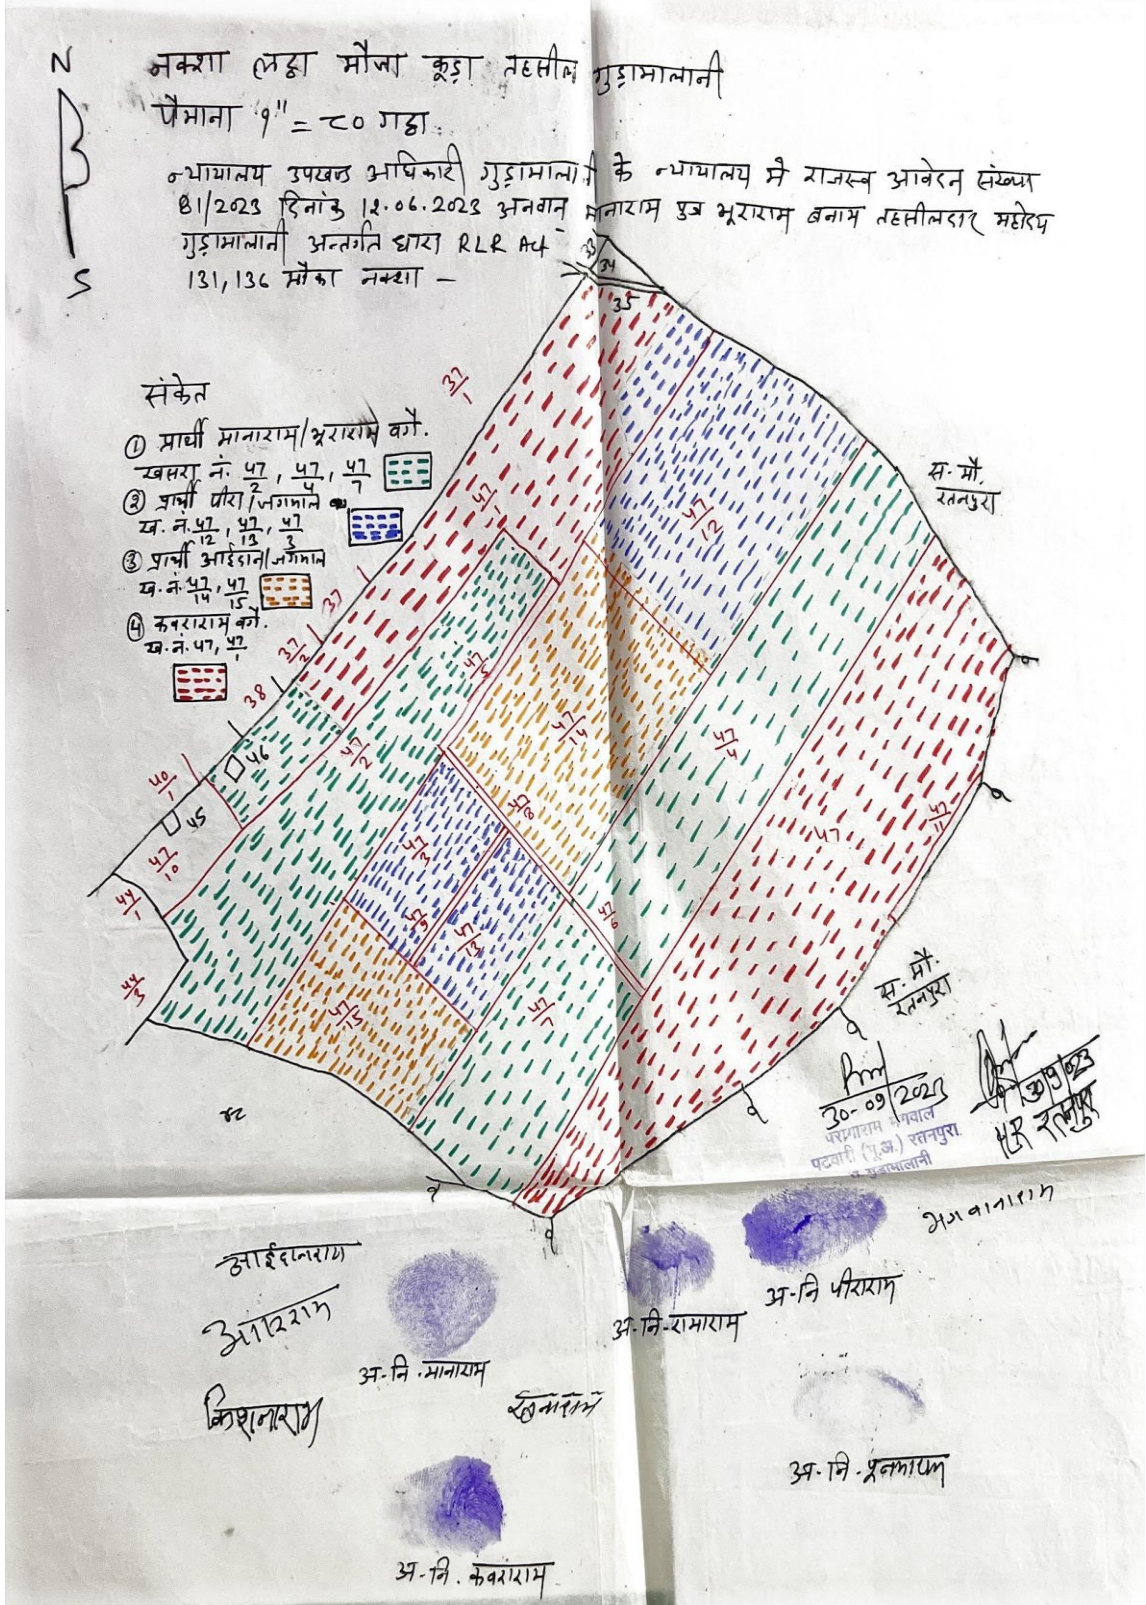 N
S
नक्शा लट्ठा मौजा कूड़ा तहसील गुड़ामालानी
पैमाना १" = ८० गट्ठा
न्यायालय उपखण्ड अधिकारी गुड़ामालानी के न्यायालय मे राजस्व आवेदन संख्या
81/2023 दिनांक 12.06.2023 अनवान मानाराम पुत्र भूराराम बनाम तहसीलदार महोदय
गुड़ामालानी अन्तर्गत धारा RLR Act
131,136 मौका नक्शा -
33
34
35
संकेत
① प्रार्थी मानाराम/भूराराम वगै.
खसरा नं. 47/2, 47/4, 47/7
② प्रार्थी पीरा/जगमाल
ख. नं. 47/12, 47/13, 47/3
③ प्रार्थी आईदान/जगमाल
ख. नं. 47/14, 47/15
④ कवराराम वगै.
ख. नं. 47, 47/1
37/1
37
37/2
38
40/1
46
45
47/10
44/1
44/3
47/1
47/12
47/5
47/2
47/14
47/4
47/8
47/3
47/9
47/13
47/6
47/15
47/7
47
47/11
स. मौ.
रतनपुरा
स. मौ.
रतनपुरा
30-09/2023
पटवारी (भू.अ.) रतनपुरा
गुडामालानी
30/9/023
रतनपुरा
आईदानराम
किशनाराम
अ-नि.मानाराम
अ-नि-रामाराम
अ-नि पीराराम
भगवानाराम
अ-नि. कवराराम